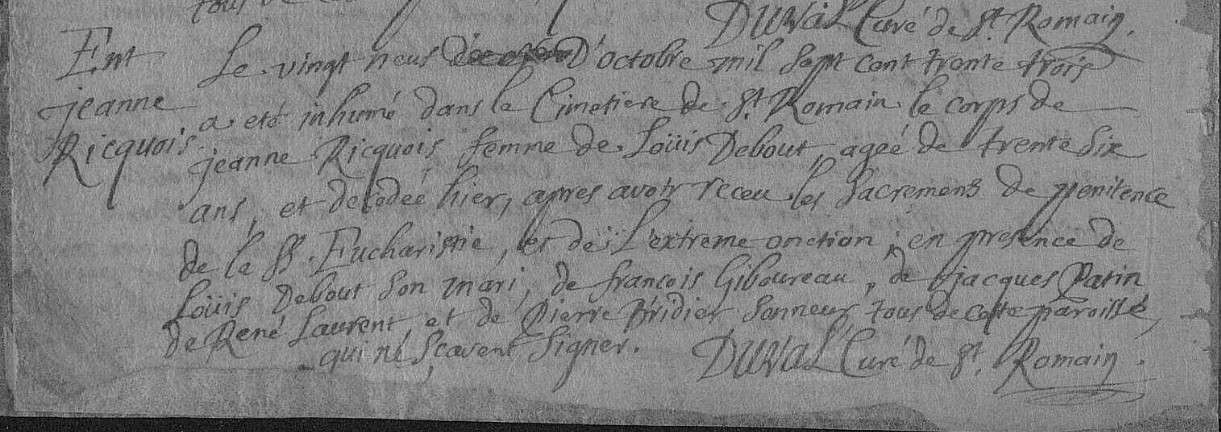 DUVAL Curé de St. Romain.
Ent
jeanne
Ricquois
Le vingt neuf D'octobre mil sept cent trente trois
a eté inhumé dans le Cimetiere de St. Romain le corps de
jeanne Ricquois femme de Loüis Debout, ageé de trente six
ans, et decedeé hier, apres avoir receu les sacremens de penitence
de la Ste. Eucharistie, et de L'extreme onction, en presence de
Loüis Debout son mari, de francois Giboureau, de jacques Patin
de René Laurent, et de Pierre Bridier sonneur, tous de cette paroisse,
qui ne scavent signer. DUVAL Curé de St. Romain.